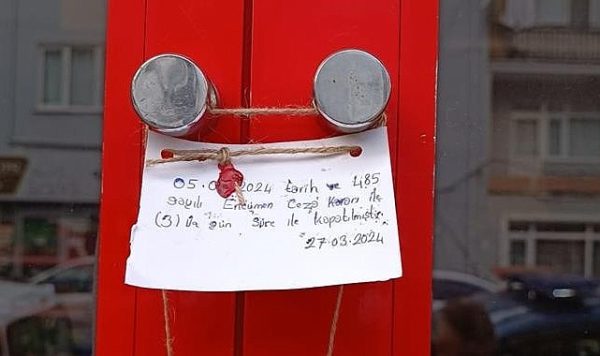 2024 tarih ve 485
sayılı Encümen Ceza Kararı ile
(3) Üç gün süre ile kapatılmıştır
27.03.2024